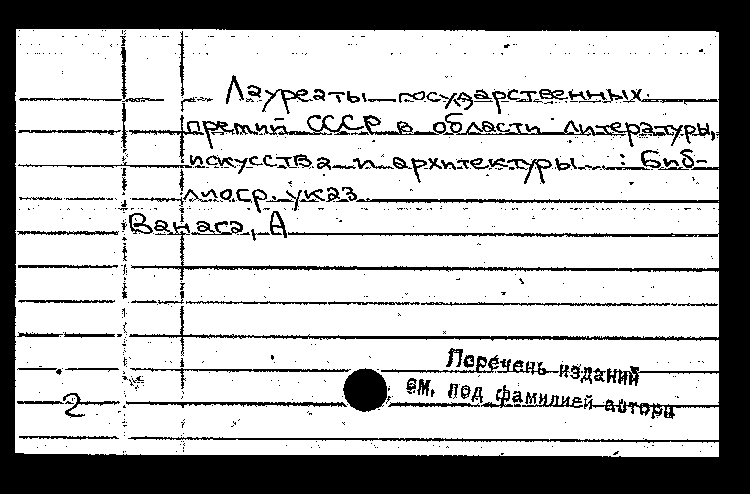 Лауреаты государственных
премий СССР в области литературы,
искусства и архитектуры : Биб-
лиогр. указ.
Ванага, А
Перечень изданий
см. под фамилией автора
2